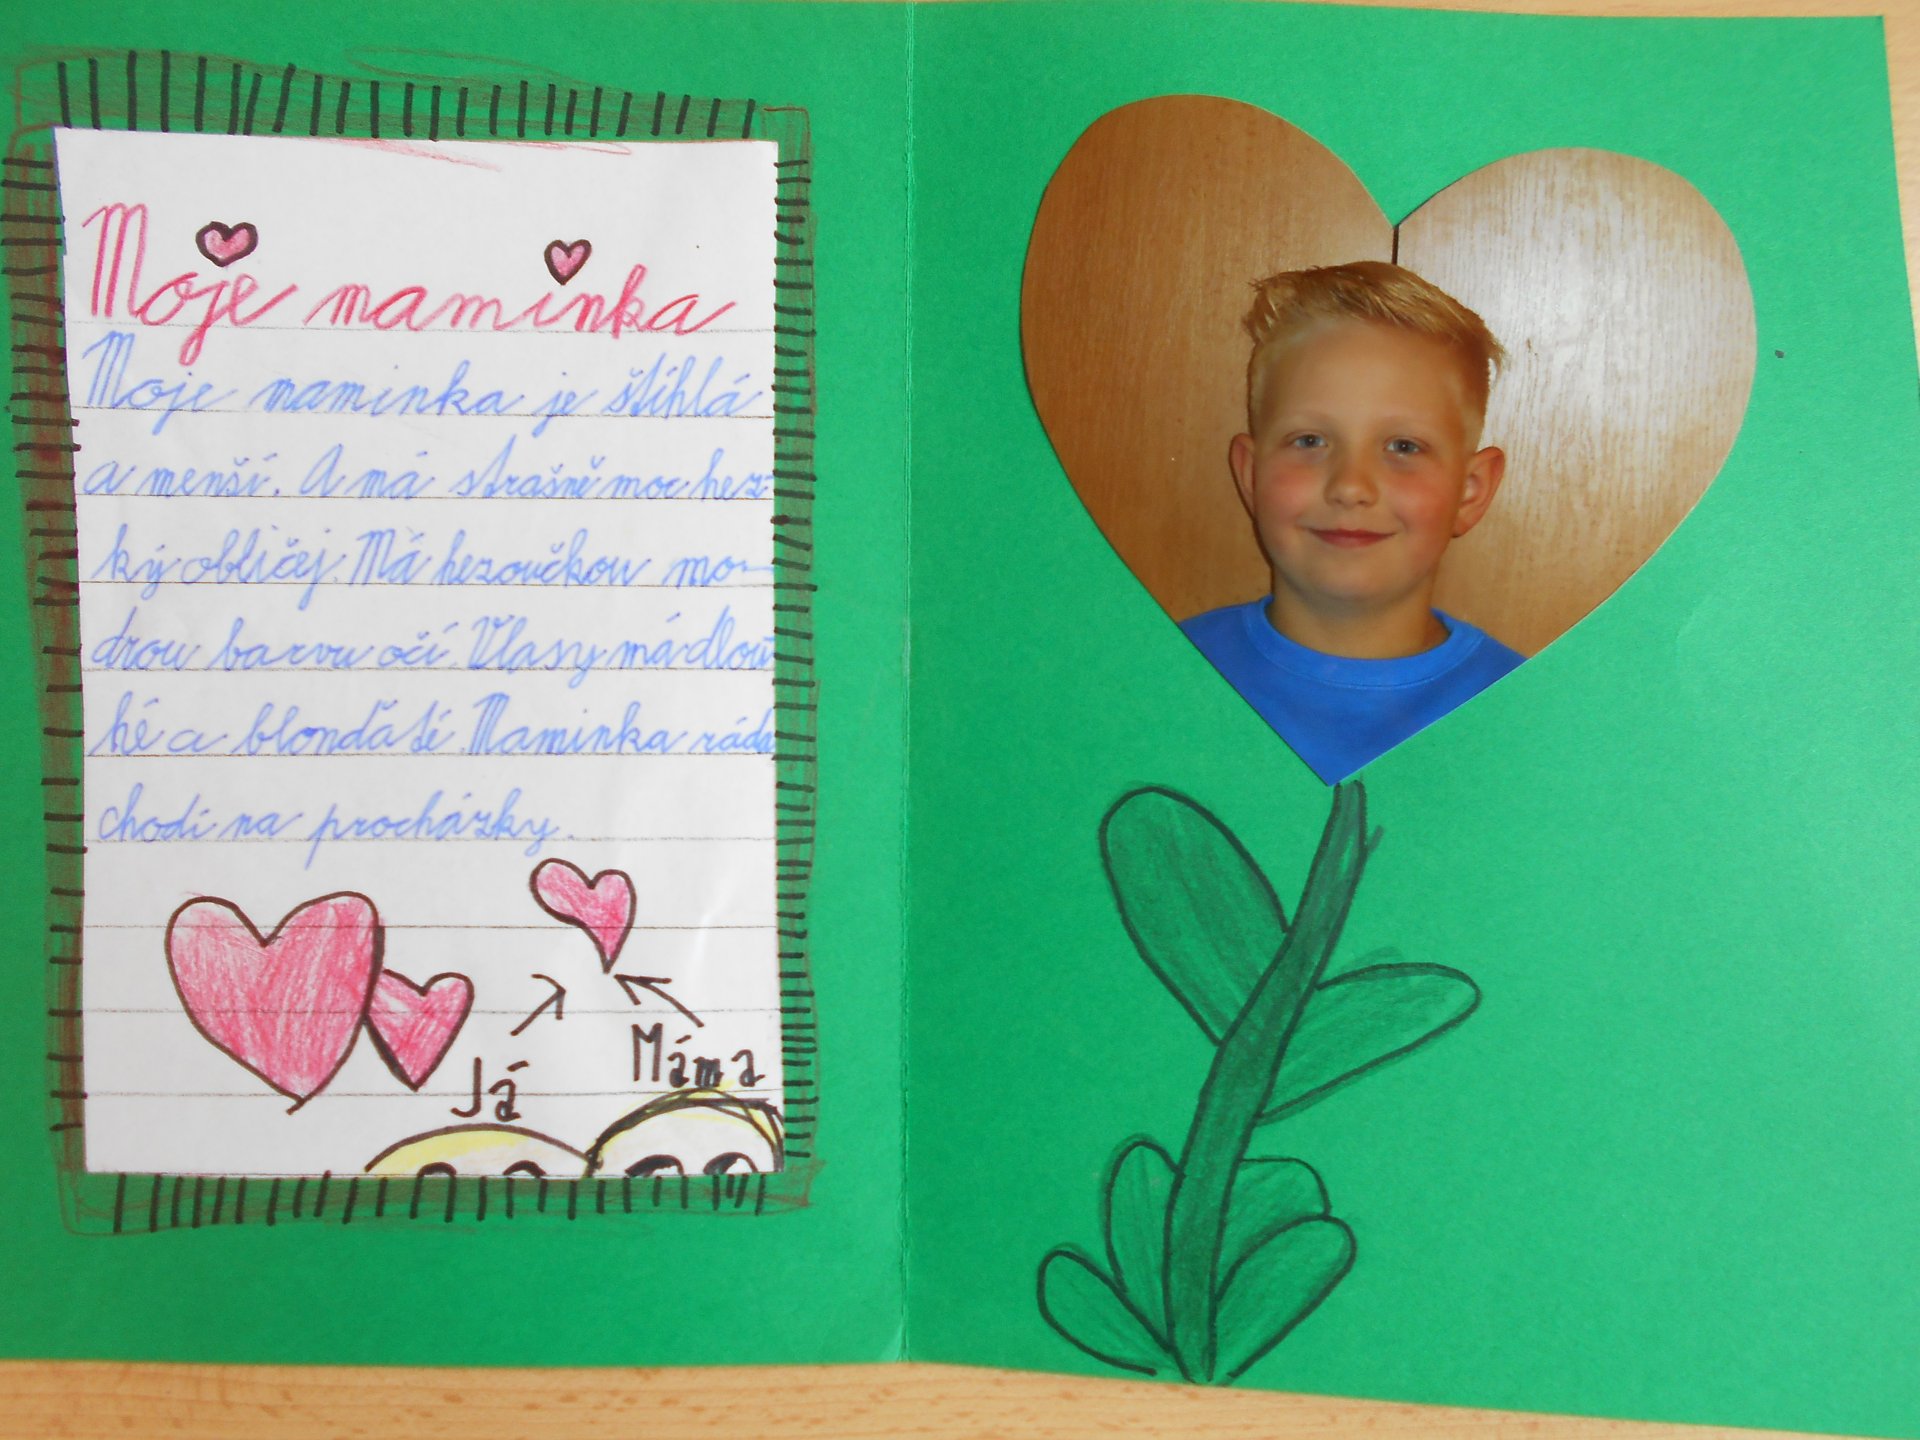 Moje maminka
Moje maminka je štíhlá
a menší. A má strašně moc hez-
ký obličej. Má hezoučkou mo-
drou barvu očí. Vlasy má dlou-
hé a blonďaté. Maminka ráda
chodí na procházky.
Já
Máma